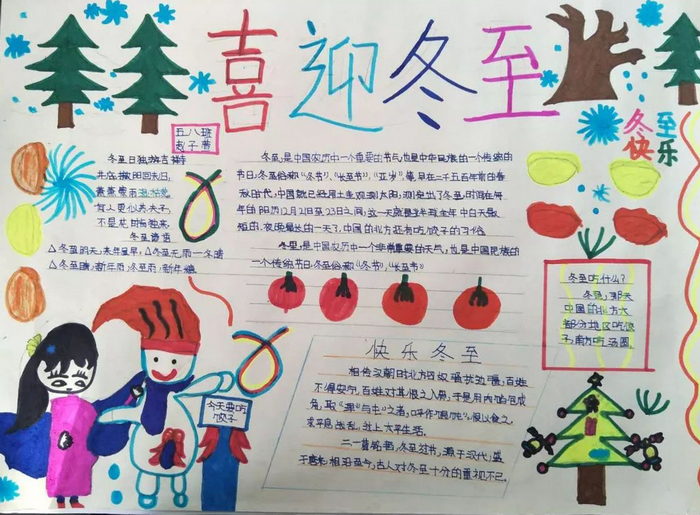 喜迎冬至
冬至
快乐
五八班
冬至日独游吉祥寺
井底微阳回未回,
萧萧寒雨湿枯荄
何人更似苏夫子,
不是花时肯独来
冬至谚语
△冬至晴天,来年是旱,△冬至无雨一冬晴
△冬至晴,新年雨,冬至雨,新年晴
冬至,是中国农历中一个重要的节气,也是中华民族的一个传统的
节日,冬至俗称“冬节”、“长至节”、“亚岁”等,早在二千五百年前的春
秋时代,中国就已经用土圭观测太阳,测定出了冬至,时间在每
年的阳历12月21日至23日之间,这一天就是北半球全年中白天最
短的,夜晚最长的一天了,中国的北方还有吃饺子的习俗
冬至,是中国农历中一个非常重要的天气,也是中国民族的
一个传统节日,冬至俗称“冬节”,“长至节”
冬至吃什么?
冬至,那天
中国的北方大
部分地区吃饺
子,南方吃汤圆。
今天要吃
饺子
快乐冬至
相传汉朝时北方匈奴骚扰边疆,百姓
不得安宁,百姓对其恨之入骨,于是用肉馅包成
角,取“浑”与“屯”之音,呼作“馄饨”。恨以食之
求平息战乱,过上太平生活。
冬至过节,源于汉代,盛
于唐宋,相沿至今,古人对冬至十分的重视不已。